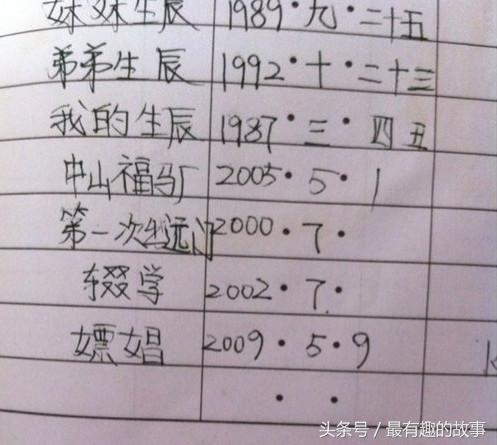 妹妹生辰 1989·九·二十五
弟弟生辰 1992·十·二十三
我的生辰 1987·三·四丑
中山福马厂 2005·5·1
第一次出远门 2000·7·
辍学 2002·7·
嫖娼 2009·5·9
· ·
头条号 / 最有趣的故事